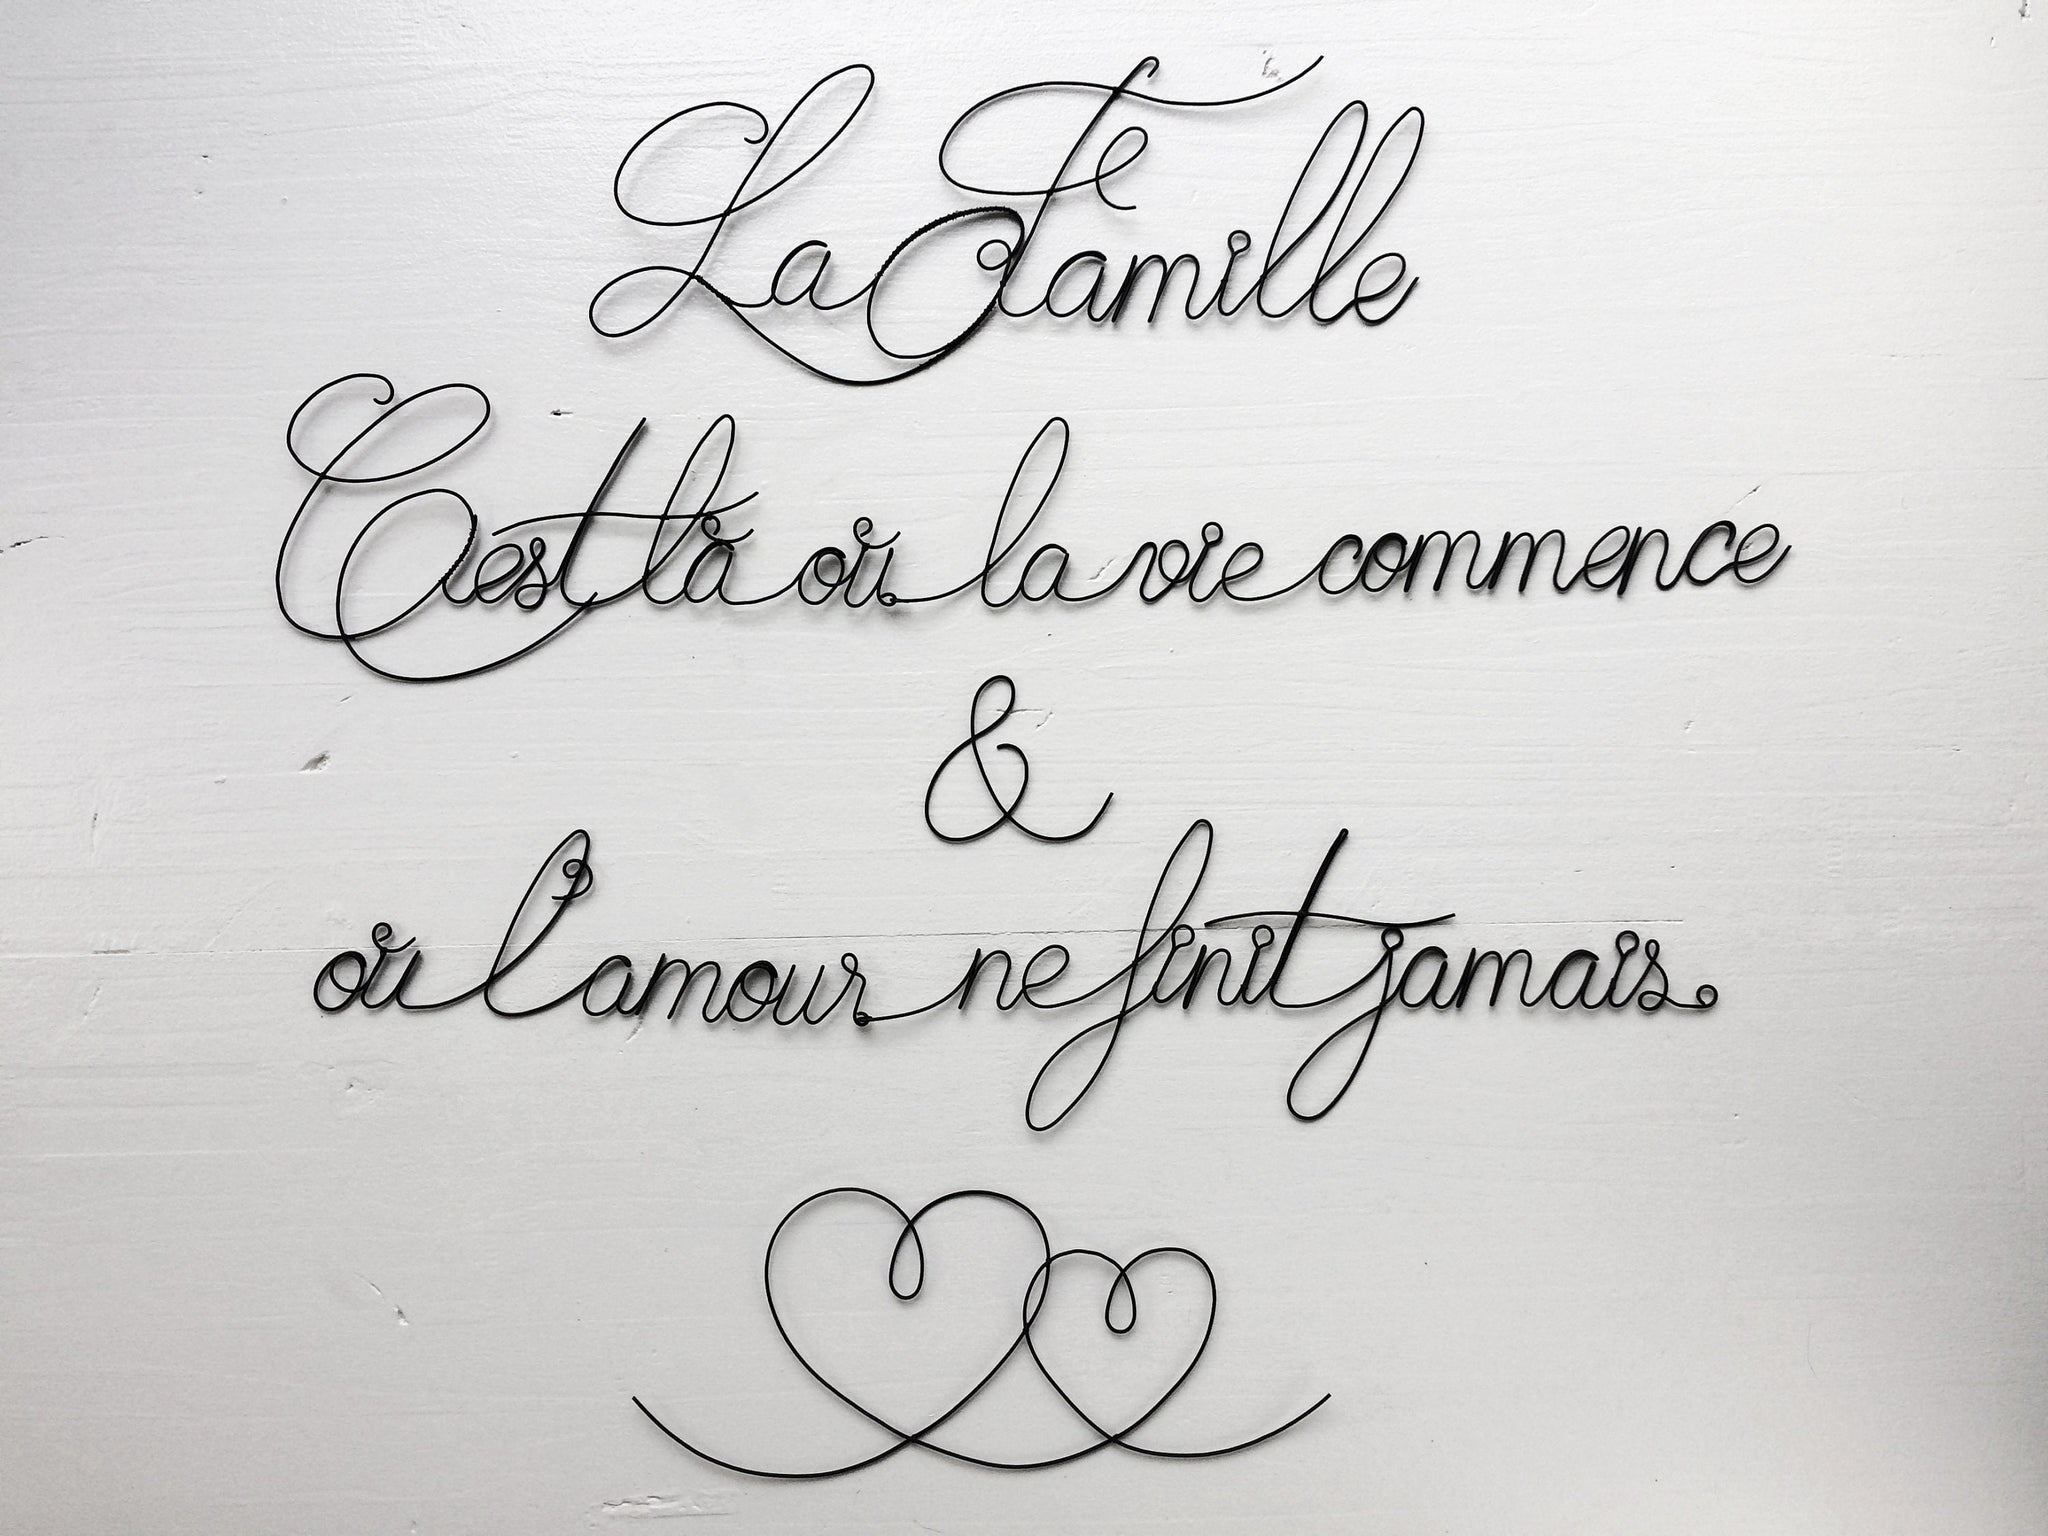 La Famille
C'est là où la vie commence
&
où l'amour ne finit jamais